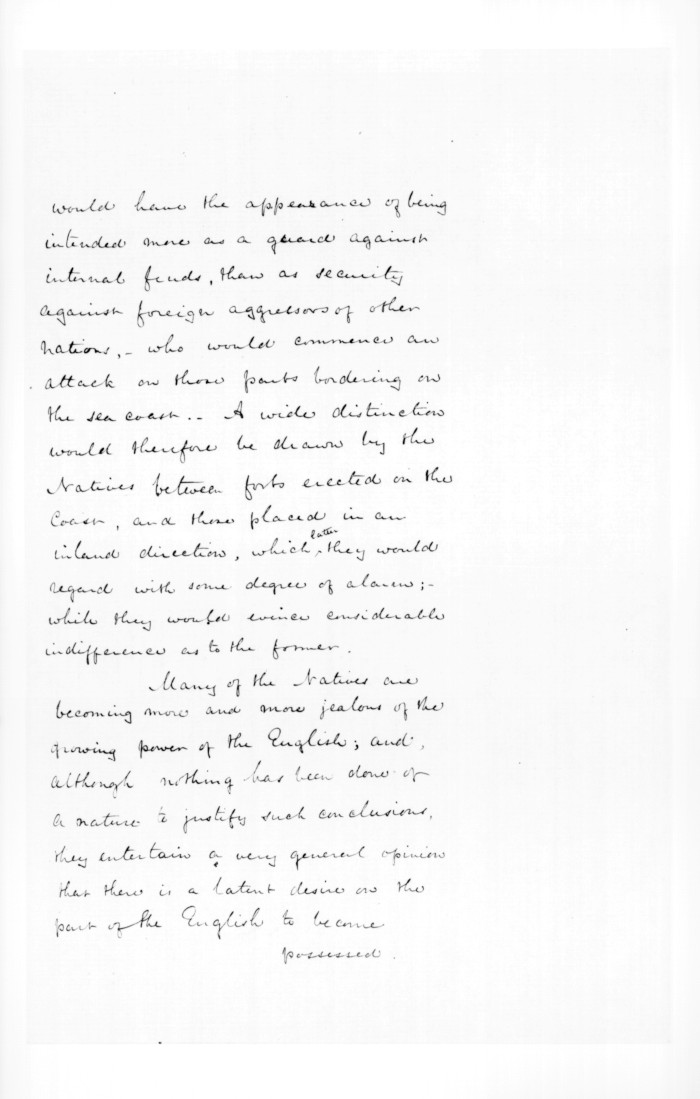 would have the appearance of being
intended more as a guard against
internal feuds, than as security
against foreign aggressors of other
nations, - who would commence an
attack on those parts bordering on
the sea coast. - A wide distinction
would therefore be drawn by the
Natives between forts erected on the
Coast, and those placed in an
inland direction, which latter they would
regard with some degree of alarm; -
while they would evince considerable
indifference as to the former.
Many of the Natives are
becoming more and more jealous of the
growing power of the English; and,
although nothing has been done of
a nature to justify such conclusions,
they entertain a very general opinion
that there is a latent desire on the
part of the English to become
possessed.